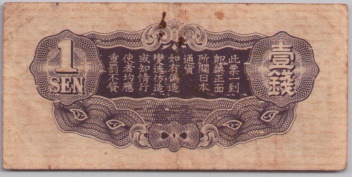 1
SEN
此票一到
即換正面
所開日本
通貨
如有偽造
變造仿造
或知情行
使者均應
重罰不貸
壹錢